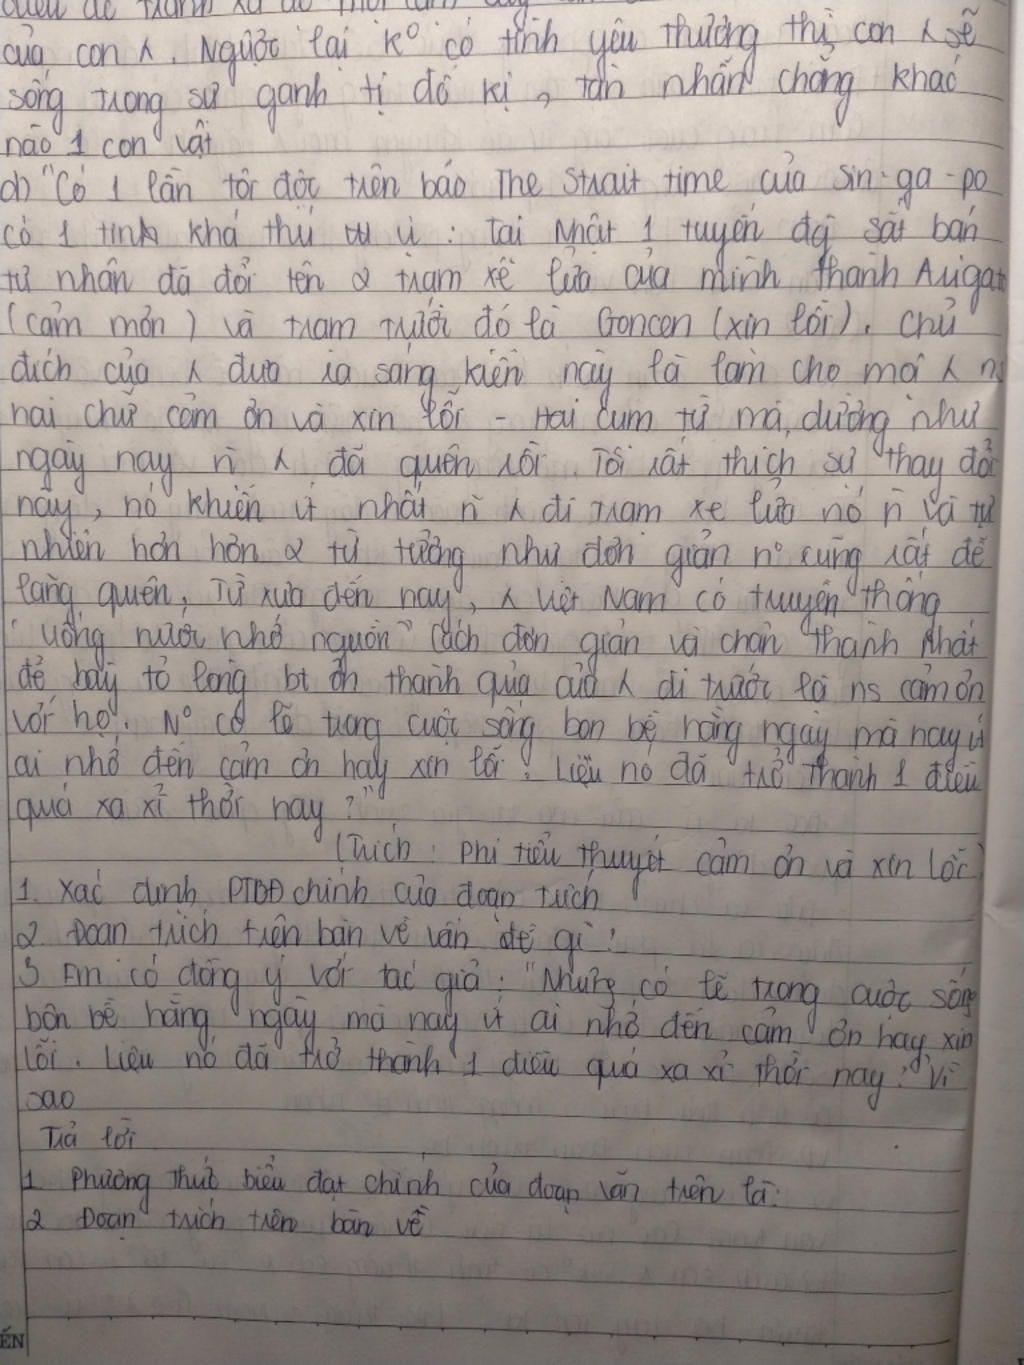 của con λ. Ngược lại k° có tình yêu thương thì con λ sẽ
sống trong sự ganh tị đố kị, tàn nhẫn chẳng khác
nào 1 con vật
d) "Có 1 lần tôi đọc trên báo The Strait time của Sin-ga-po
có 1 tinh khá thú vị : Tại Nhật 1 tuyến đg sắt bán
tư nhân đã đổi tên 2 trạm xe lửa của mình thành Arigato
(cảm mơn) và trạm trưới đó là Goncen (xin lỗi). Chủ
đích của λ đưa ra sáng kiến này là làm cho mọi λ ns
hai chữ cảm ơn và xin lỗi - Hai cụm từ mà, dường như
ngày nay n̄ λ đã quên rồi. Tôi rất thích sự thay đổi
này, nó khiến ít nhất n̄ λ đi trạm xe lửa nó n̄ và tự
nhiên hơn hơn 2 từ tưởng như đơn giản n° cũng rất dễ
lãng quên, Từ xưa đến nay, λ Việt Nam có truyền thống
"uống nước nhớ nguồn" Cách đơn giản và chân thành nhất
để bày tỏ lòng bt ơn thành qủa của λ đi trước là ns cảm ơn
với họ. N° có lẽ trong cuộc sống bon bề hằng ngày mà nay ít
ai nhớ đến cảm ơn hay xin lỗi. Liệu nó đã trở thành 1 điều
quá xa xỉ thời nay ?"
(Trích : Phi tiểu thuyết cảm ơn và xin lỗi)
1. Xác định PTBĐ chính của đoạn trích
2. Đoạn trích trên bàn về vấn đề gì?
3 Em có đồng ý với tác giả : "Nhưng có lẽ trong cuộc sống
bôn bề hằng ngày mà nay ít ai nhớ đến cảm ơn hay xin
lỗi. Liệu nó đã trở thành 1 điều quá xa xỉ thời nay?" Vì
sao
Trả lời
1. Phương thức biểu đạt chính của đoạn văn trên là:
2 Đoạn trích trên bàn về
ẾN